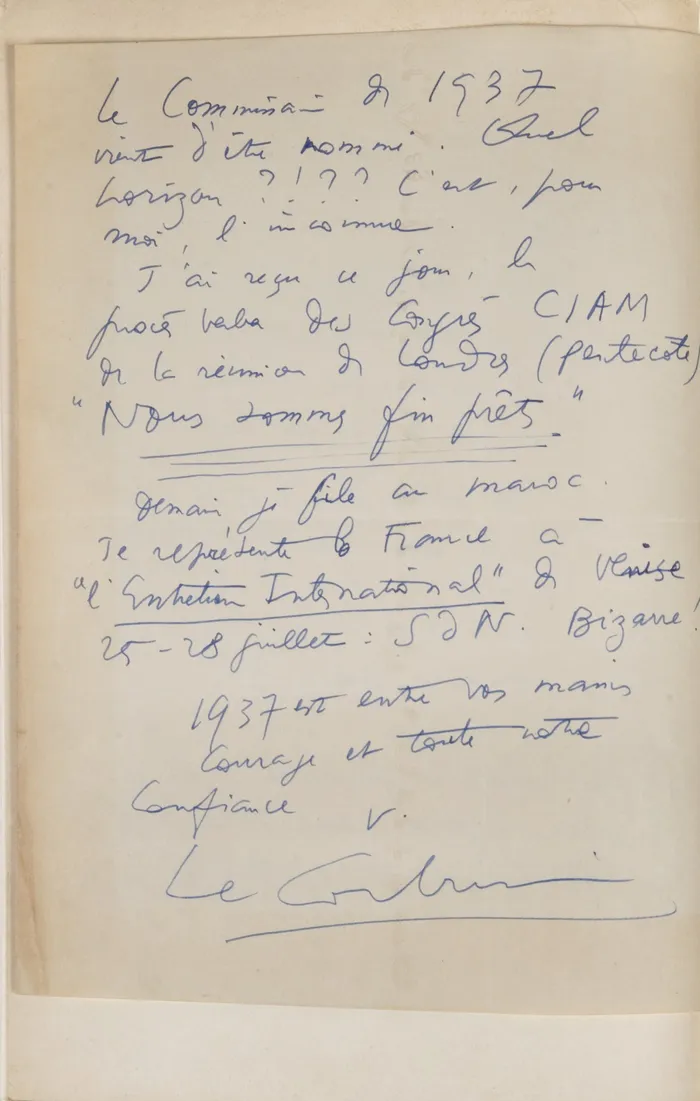 Le Commissaire de 1937
vient d'être nommé. Quel
horizon ?!?? C'est, pour
moi, l'inconnue.
J'ai reçu ce jour, le
procès verbal des Congrès CIAM
de la réunion de Londres (pentecôte)
"Nous sommes fin prêts"
Demain je file au maroc.
Je représente la France à
"l'Entretien International" de Venise
25-28 juillet : SDN. Bizarre!
1937 est entre vos mains
Courage et toute notre
Confiance V.
Le Corbusier